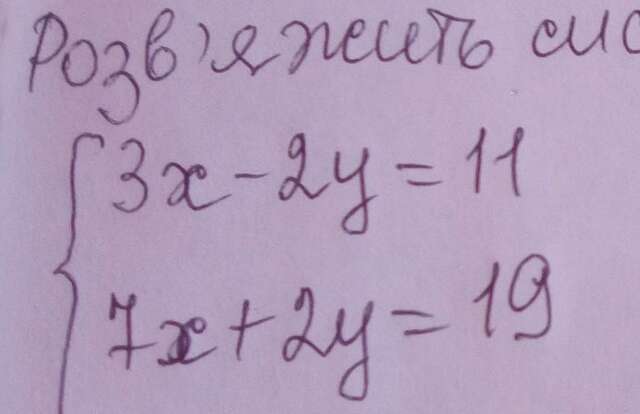 Розв'яжить
3x - 2y = 11
7x + 2y = 19